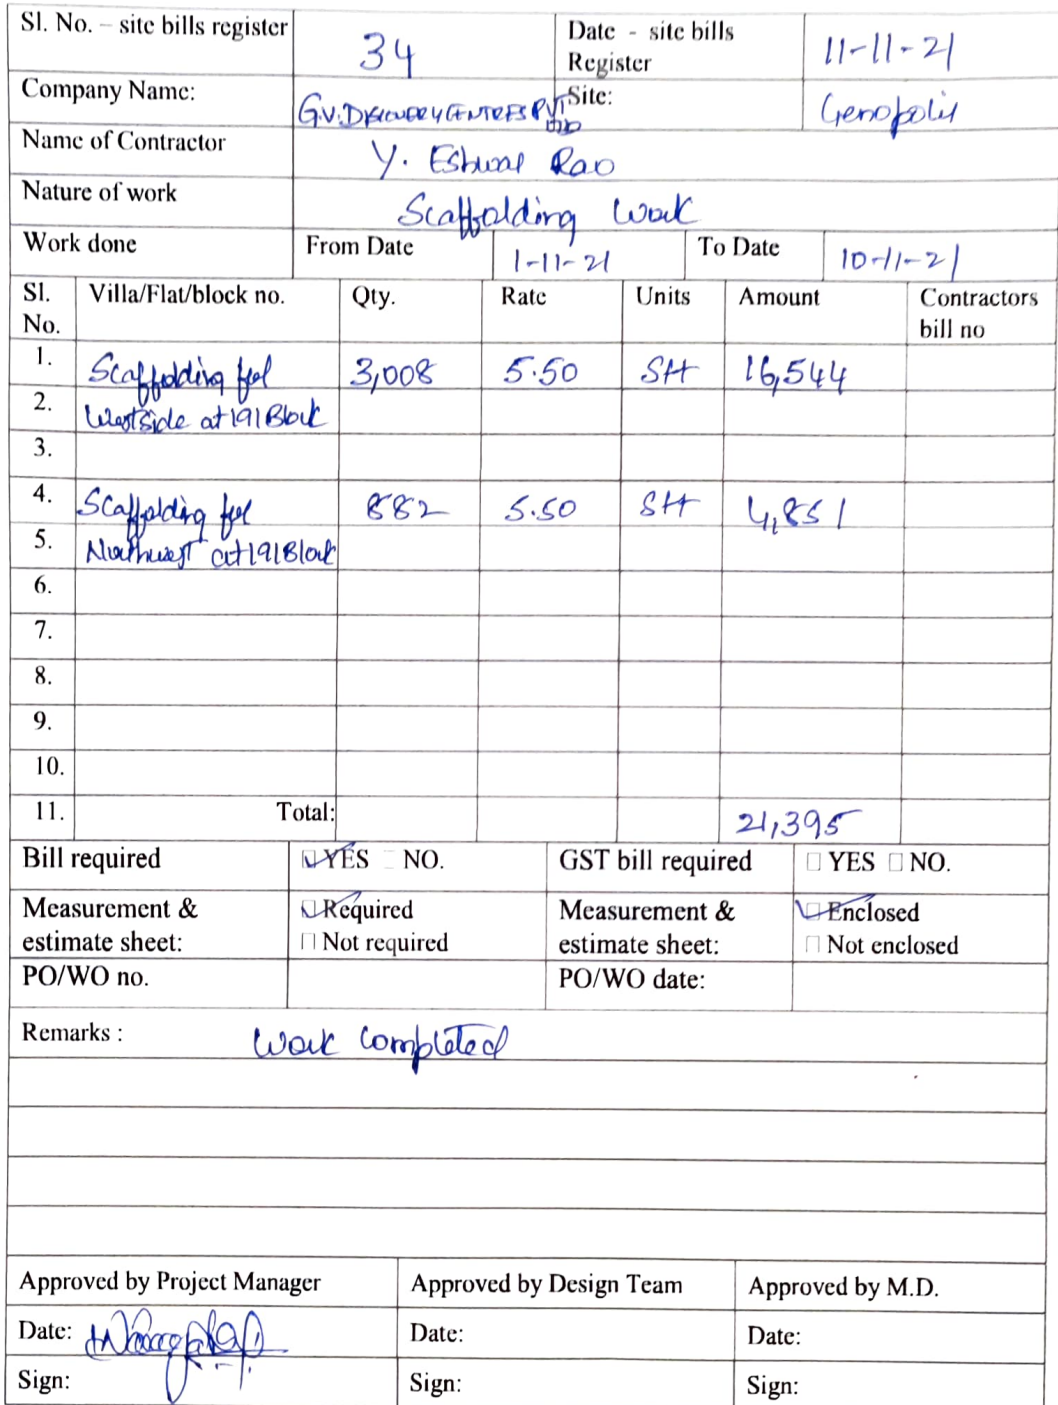 Sl. No. – site bills register 34 Date - site bills Register 11-11-21
Company Name: G.V. DISCOVERY CENTRES PVT LTD Site: Genopolis
Name of Contractor Y. Eshwar Rao
Nature of work Scaffolding Work
Work done From Date 1-11-21 To Date 10-11-21
Sl. No. Villa/Flat/block no. Qty. Rate Units Amount Contractors bill no
1. Scaffolding for 3,008 5.50 Sft 16,544
2. Westside at 191 Block
3.
4. Scaffolding for 882 5.50 Sft 4,851
5. Northwest at 191 Block
6.
7.
8.
9.
10.
11. Total: 21,395
Bill required YES NO. GST bill required YES NO.
Measurement & estimate sheet: Required Measurement & estimate sheet: Enclosed
Not required Not enclosed
PO/WO no. PO/WO date:
Remarks : Work Completed
Approved by Project Manager Approved by Design Team Approved by M.D.
Date: Date: Date:
Sign: Sign: Sign: